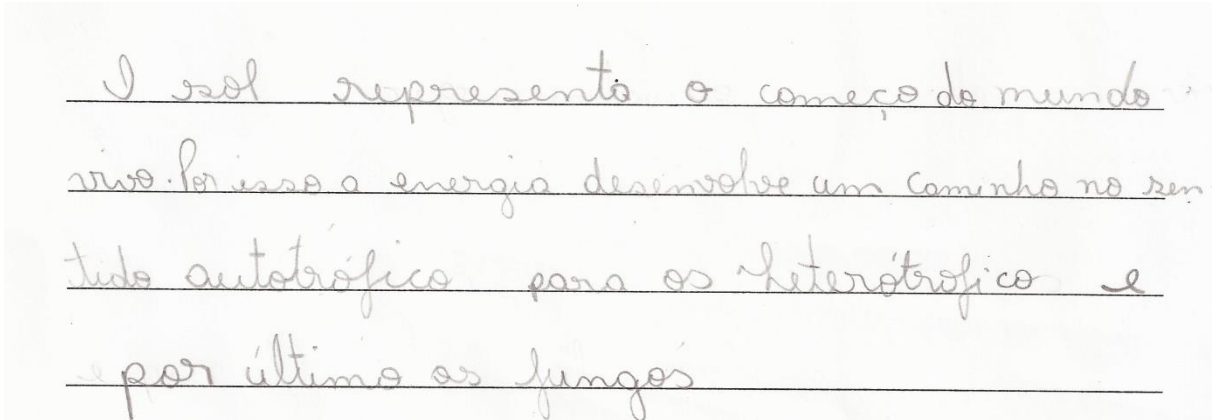 O sol representa o começo do mundo
vivo. Por isso a energia desenvolve um caminho no sen
tido autotrófico para os heterótrofico e
por último os fungos